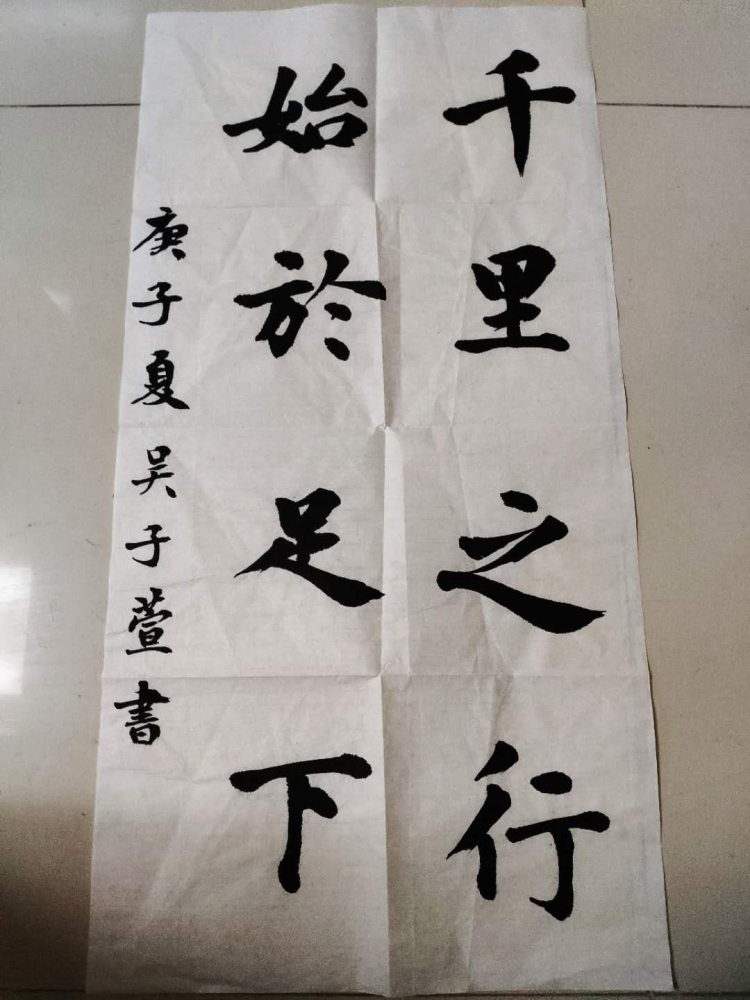 千里之行
始於足下
庚子夏吴子萱書